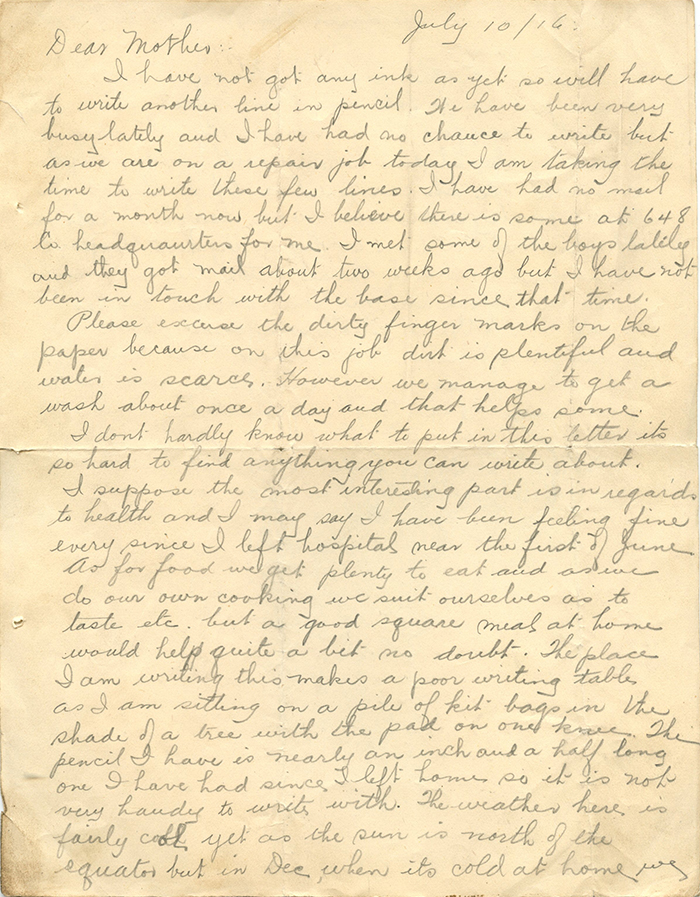 July 10/16.
Dear Mother:
I have not got any ink as yet so will have
to write another line in pencil. We have been very
busy lately and I have had no chance to write but
as we are on a repair job today I am taking the
time to write these few lines. I have had no mail
for a month now but I believe there is some at 648
Co. headquaurters for me. I met some of the boys lately
and they got mail about two weeks ago but I have not
been in touch with the base since that time.
Please excuse the dirty finger marks on the
paper because on this job dirt is plentiful and
water is scarce. However we manage to get a
wash about once a day and that helps some.
I dont hardly know what to put in this letter its
so hard to find anything you can write about.
I suppose the most interesting part is in regards
to health and I may say I have been feeling fine
every since I left hospital near the first of June
As for food we get plenty to eat and as we
do our own cooking we suit ourselves as to
taste etc. but a good square meal at home
would help quite a bit no doubt. The place
I am writing this makes a poor writing table
as I am sitting on a pile of kit bags in the
shade of a tree with the pad on one knee. The
pencil I have is nearly an inch and a half long
one I have had since I left home so it is not
very handy to write with. The weather here is
fairly yet as the sun is north of the
equator but in Dec, when its cold at home we